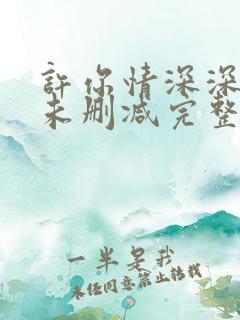 許你情深深
未删减完整
一半是我
未经同意禁止搭载